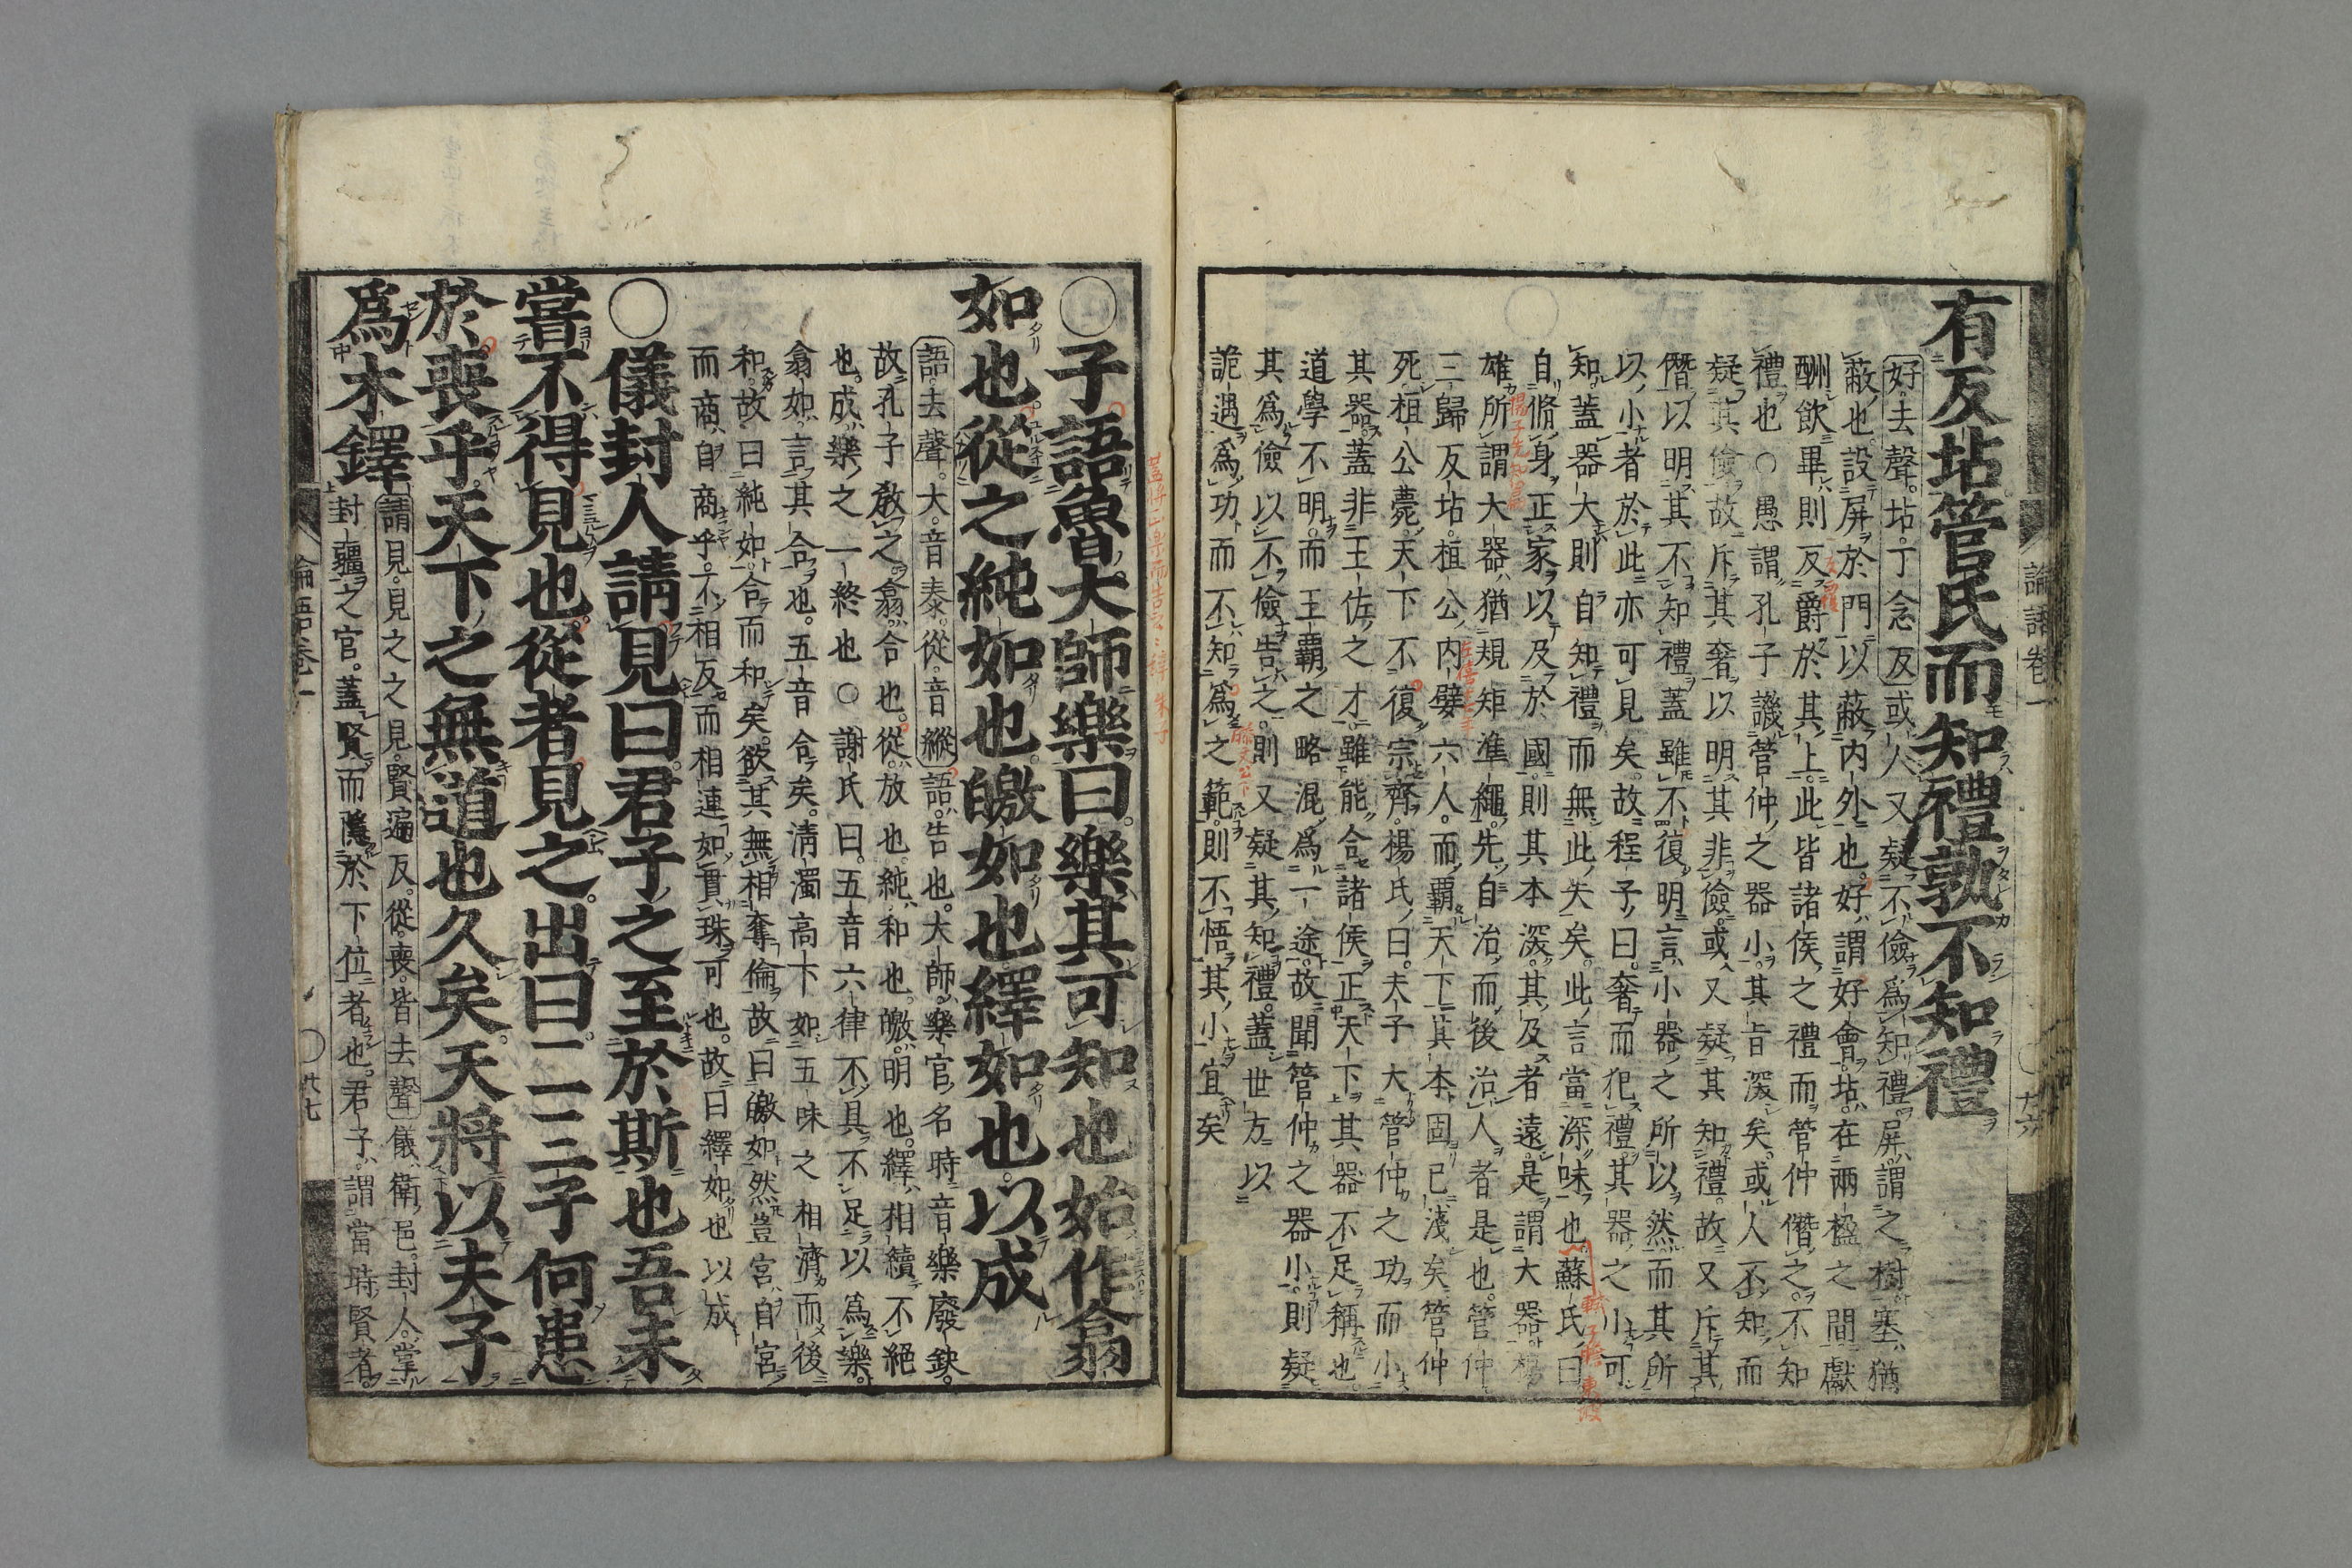 論語卷一
有反坫管氏而知禮孰不知禮
好去聲坫丁念反或人又疑不儉爲知禮屏謂之樹塞猶
蔽也設屏於門以蔽內外也好謂好會坫在兩楹之間獻
酬飲畢則反爵於其上此皆諸侯之禮而管仲僭之不知
禮也○愚謂孔子譏管仲之器小其旨深矣或人不知而
疑其儉故斥其奢以明其非儉或又疑其知禮故又斥其
僭以明其不知禮蓋雖不復明言小器之所以然而其所
以小者於此亦可見矣故程子曰奢而犯禮其器之小可
知蓋器大則自知禮而無此失矣此言當深味也蘇氏曰
自脩身正家以及於國則其本深其及者遠是謂大器揚
雄所謂大器猶規矩準繩先自治而後治人者是也管仲
三歸反坫桓公內嬖六人而霸天下其本固已淺矣管仲
死桓公薨天下不復宗齊楊氏曰夫子大管仲之功而小
其器蓋非王佐之才雖能合諸侯正天下其器不足稱也
道學不明而王霸之略混爲一途故聞管仲之器小則疑
其爲儉以不儉告之則又疑其知禮蓋世方以
詭遇爲功而不知爲之範則不悟其小宜矣
○子語魯大師樂曰樂其可知也始作翕
如也從之純如也皦如也繹如也以成
語去聲大音泰從音縱語告也大師樂官名時音樂廢缺
故孔子教之翕合也從放也純和也皦明也繹相續不絕
也成樂之一終也○謝氏曰五音六律不具不足以爲樂
翕如言其合也五音合矣清濁高下如五味之相濟而後
和故曰純如合而和矣欲其無相奪倫故曰皦如然豈宮自宮
而商自商乎不相反而相連如貫珠可也故曰繹如也以成
○儀封人請見曰君子之至於斯也吾未
嘗不得見也從者見之出曰二三子何患
於喪乎天下之無道也久矣天將以夫子
爲木鐸
請見見之之見賢遍反從喪皆去聲儀衛邑封人掌
封疆之官蓋賢而隱於下位者也君子謂當時賢者
論語卷一
○廿七